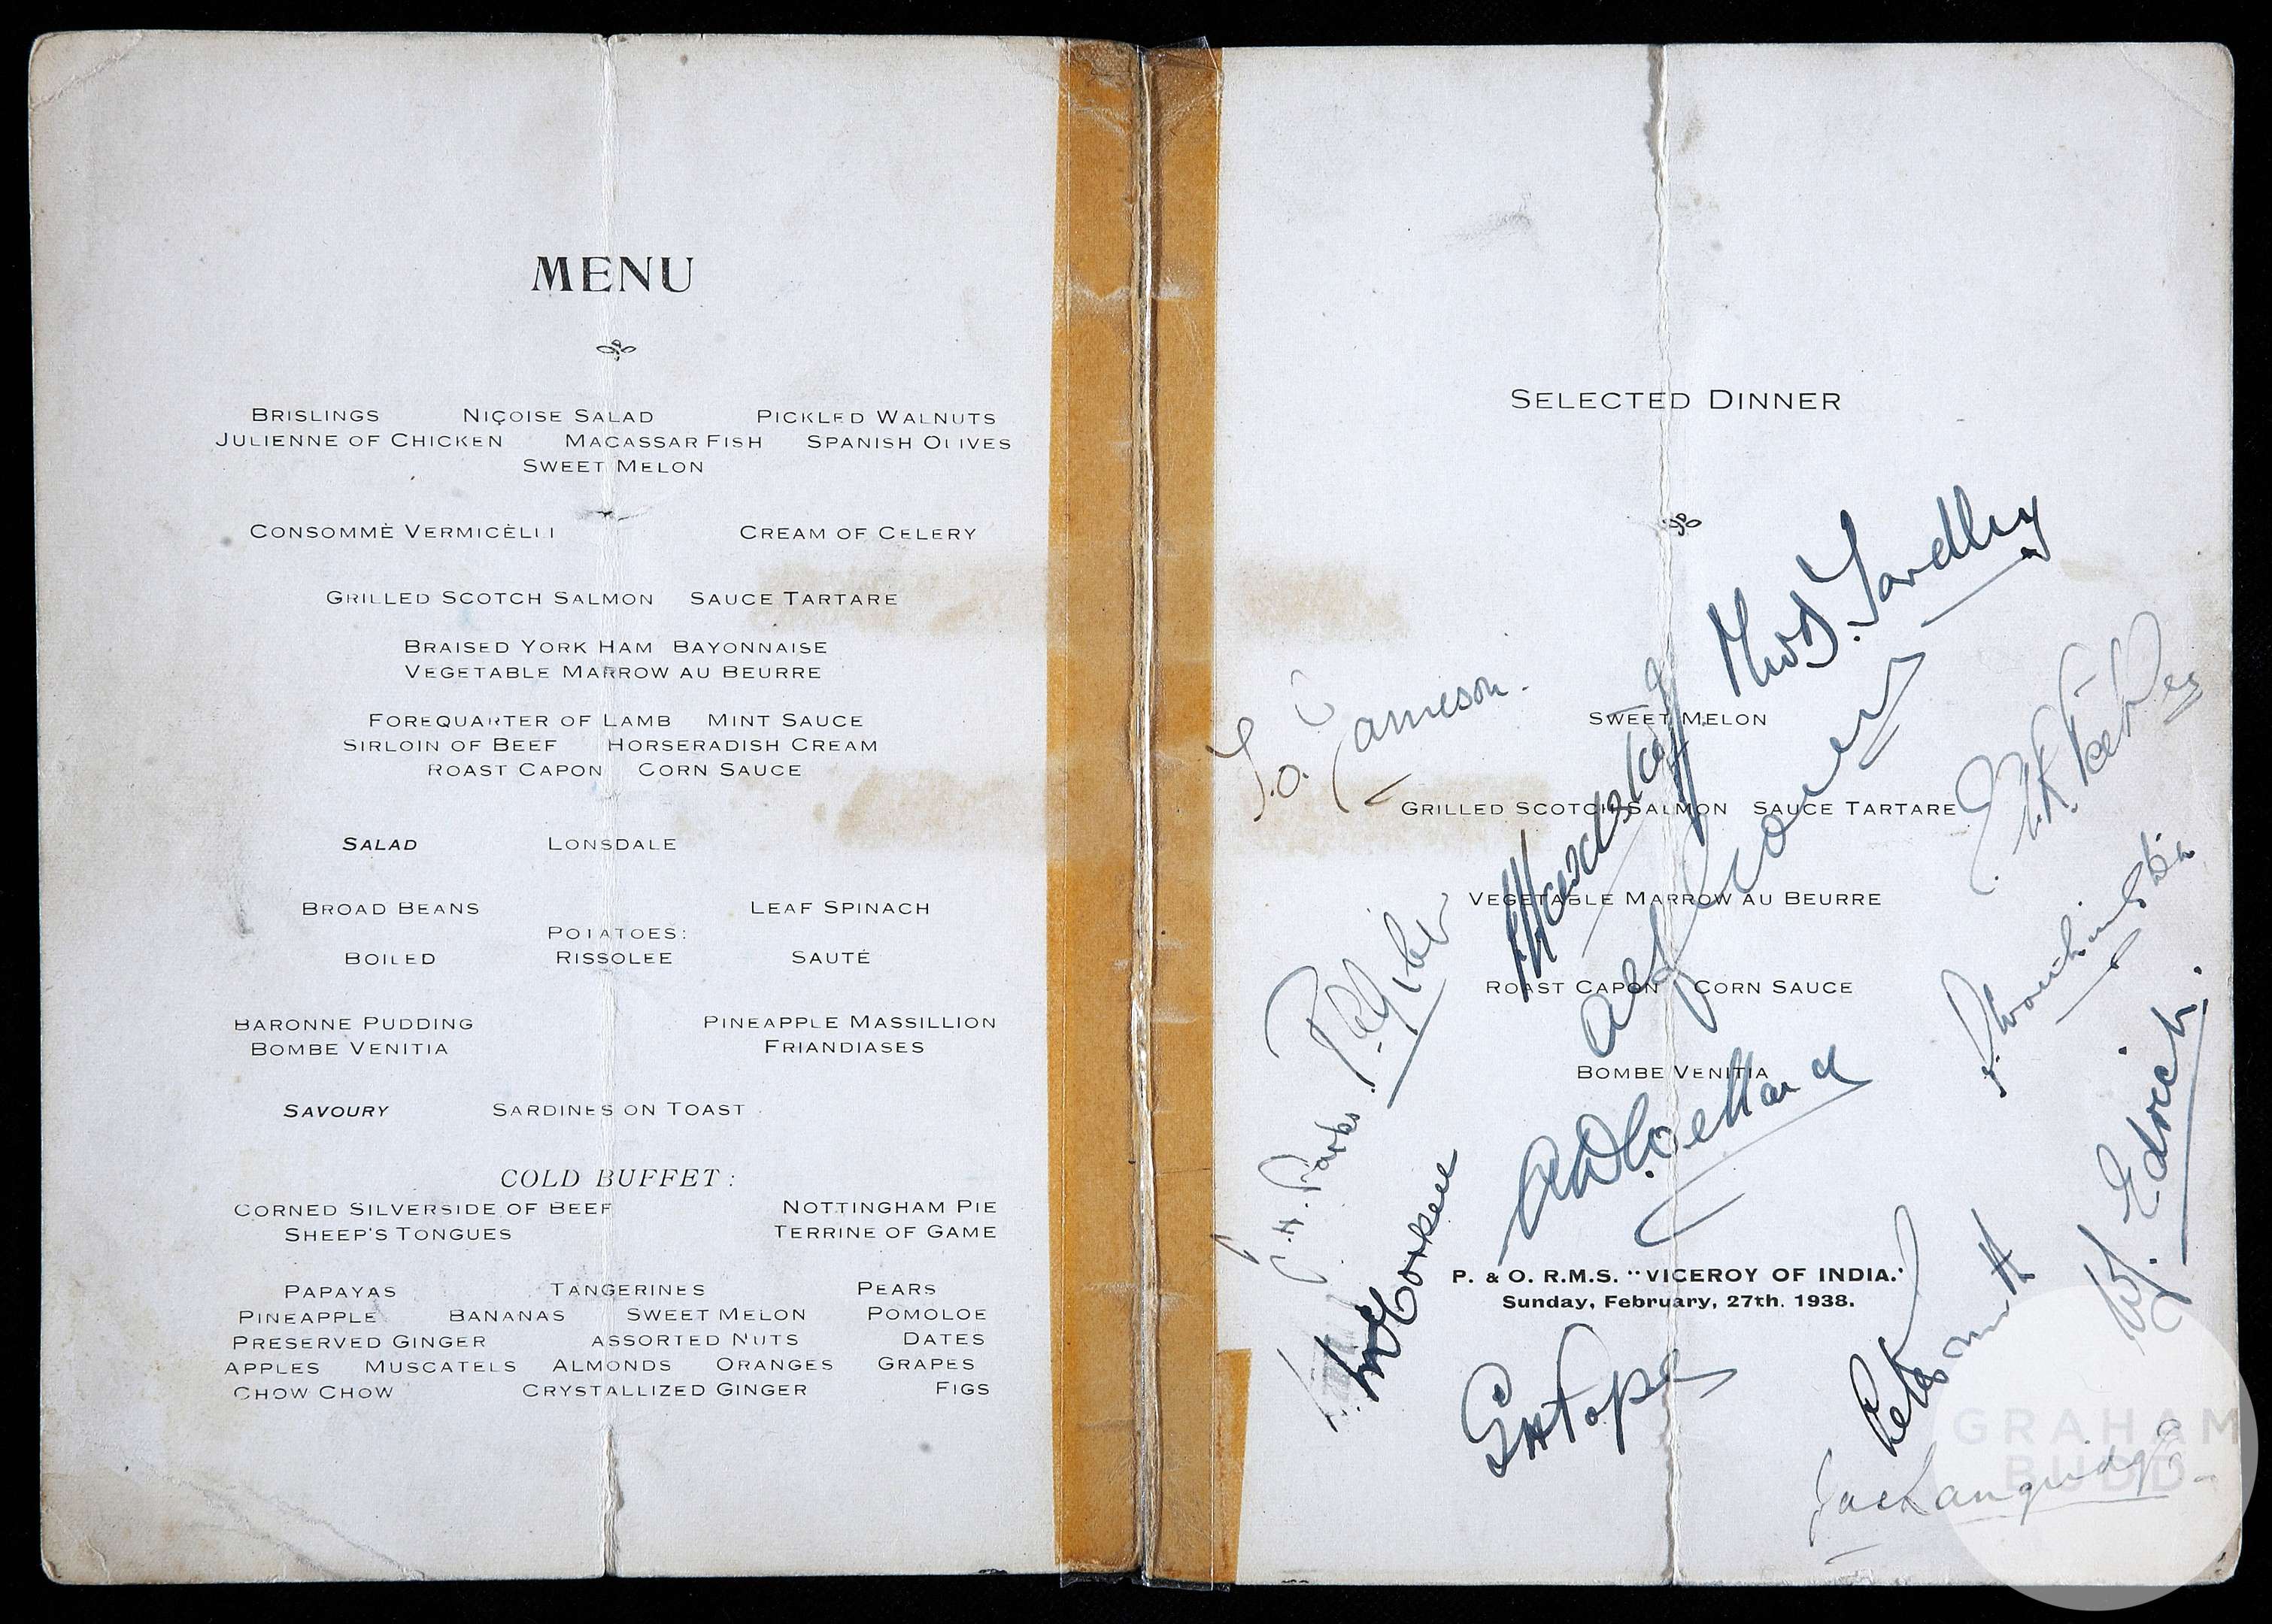 MENU
BRISLINGS NIÇOISE SALAD PICKLED WALNUTS
JULIENNE OF CHICKEN MACASSAR FISH SPANISH OLIVES
SWEET MELON
CONSOMMÈ VERMICÈLLI CREAM OF CELERY
GRILLED SCOTCH SALMON SAUCE TARTARE
BRAISED YORK HAM BAYONNAISE
VEGETABLE MARROW AU BEURRE
FOREQUARTER OF LAMB MINT SAUCE
SIRLOIN OF BEEF HORSERADISH CREAM
ROAST CAPON CORN SAUCE
SALAD LONSDALE
BROAD BEANS LEAF SPINACH
POTATOES:
BOILED RISSOLEE SAUTÉ
BARONNE PUDDING PINEAPPLE MASSILLION
BOMBE VENITIA FRIANDIASES
SAVOURY SARDINES ON TOAST
COLD BUFFET:
CORNED SILVERSIDE OF BEEF NOTTINGHAM PIE
SHEEP'S TONGUES TERRINE OF GAME
PAPAYAS TANGERINES PEARS
PINEAPPLE BANANAS SWEET MELON POMOLOE
PRESERVED GINGER ASSORTED NUTS DATES
APPLES MUSCATELS ALMONDS ORANGES GRAPES
CHOW CHOW CRYSTALLIZED GINGER FIGS
SELECTED DINNER
N.W.D. Yardley
T.O. Jameson.
SWEET MELON
Hardstaff
GRILLED SCOTCH SALMON SAUCE TARTARE
Alf Gover
VEGETABLE MARROW AU BEURRE
P.A. Gibb
ROAST CAPON CORN SAUCE
T.S. Worthington
BOMBE VENITIA
W.J. Edrich.
J.H. Parks
N. McCorkell
P. & O. R.M.S. "VICEROY OF INDIA."
Sunday, February, 27th. 1938.
G H Pope
Peter Smith
Jas Langridge
GRAHAM
BUDD